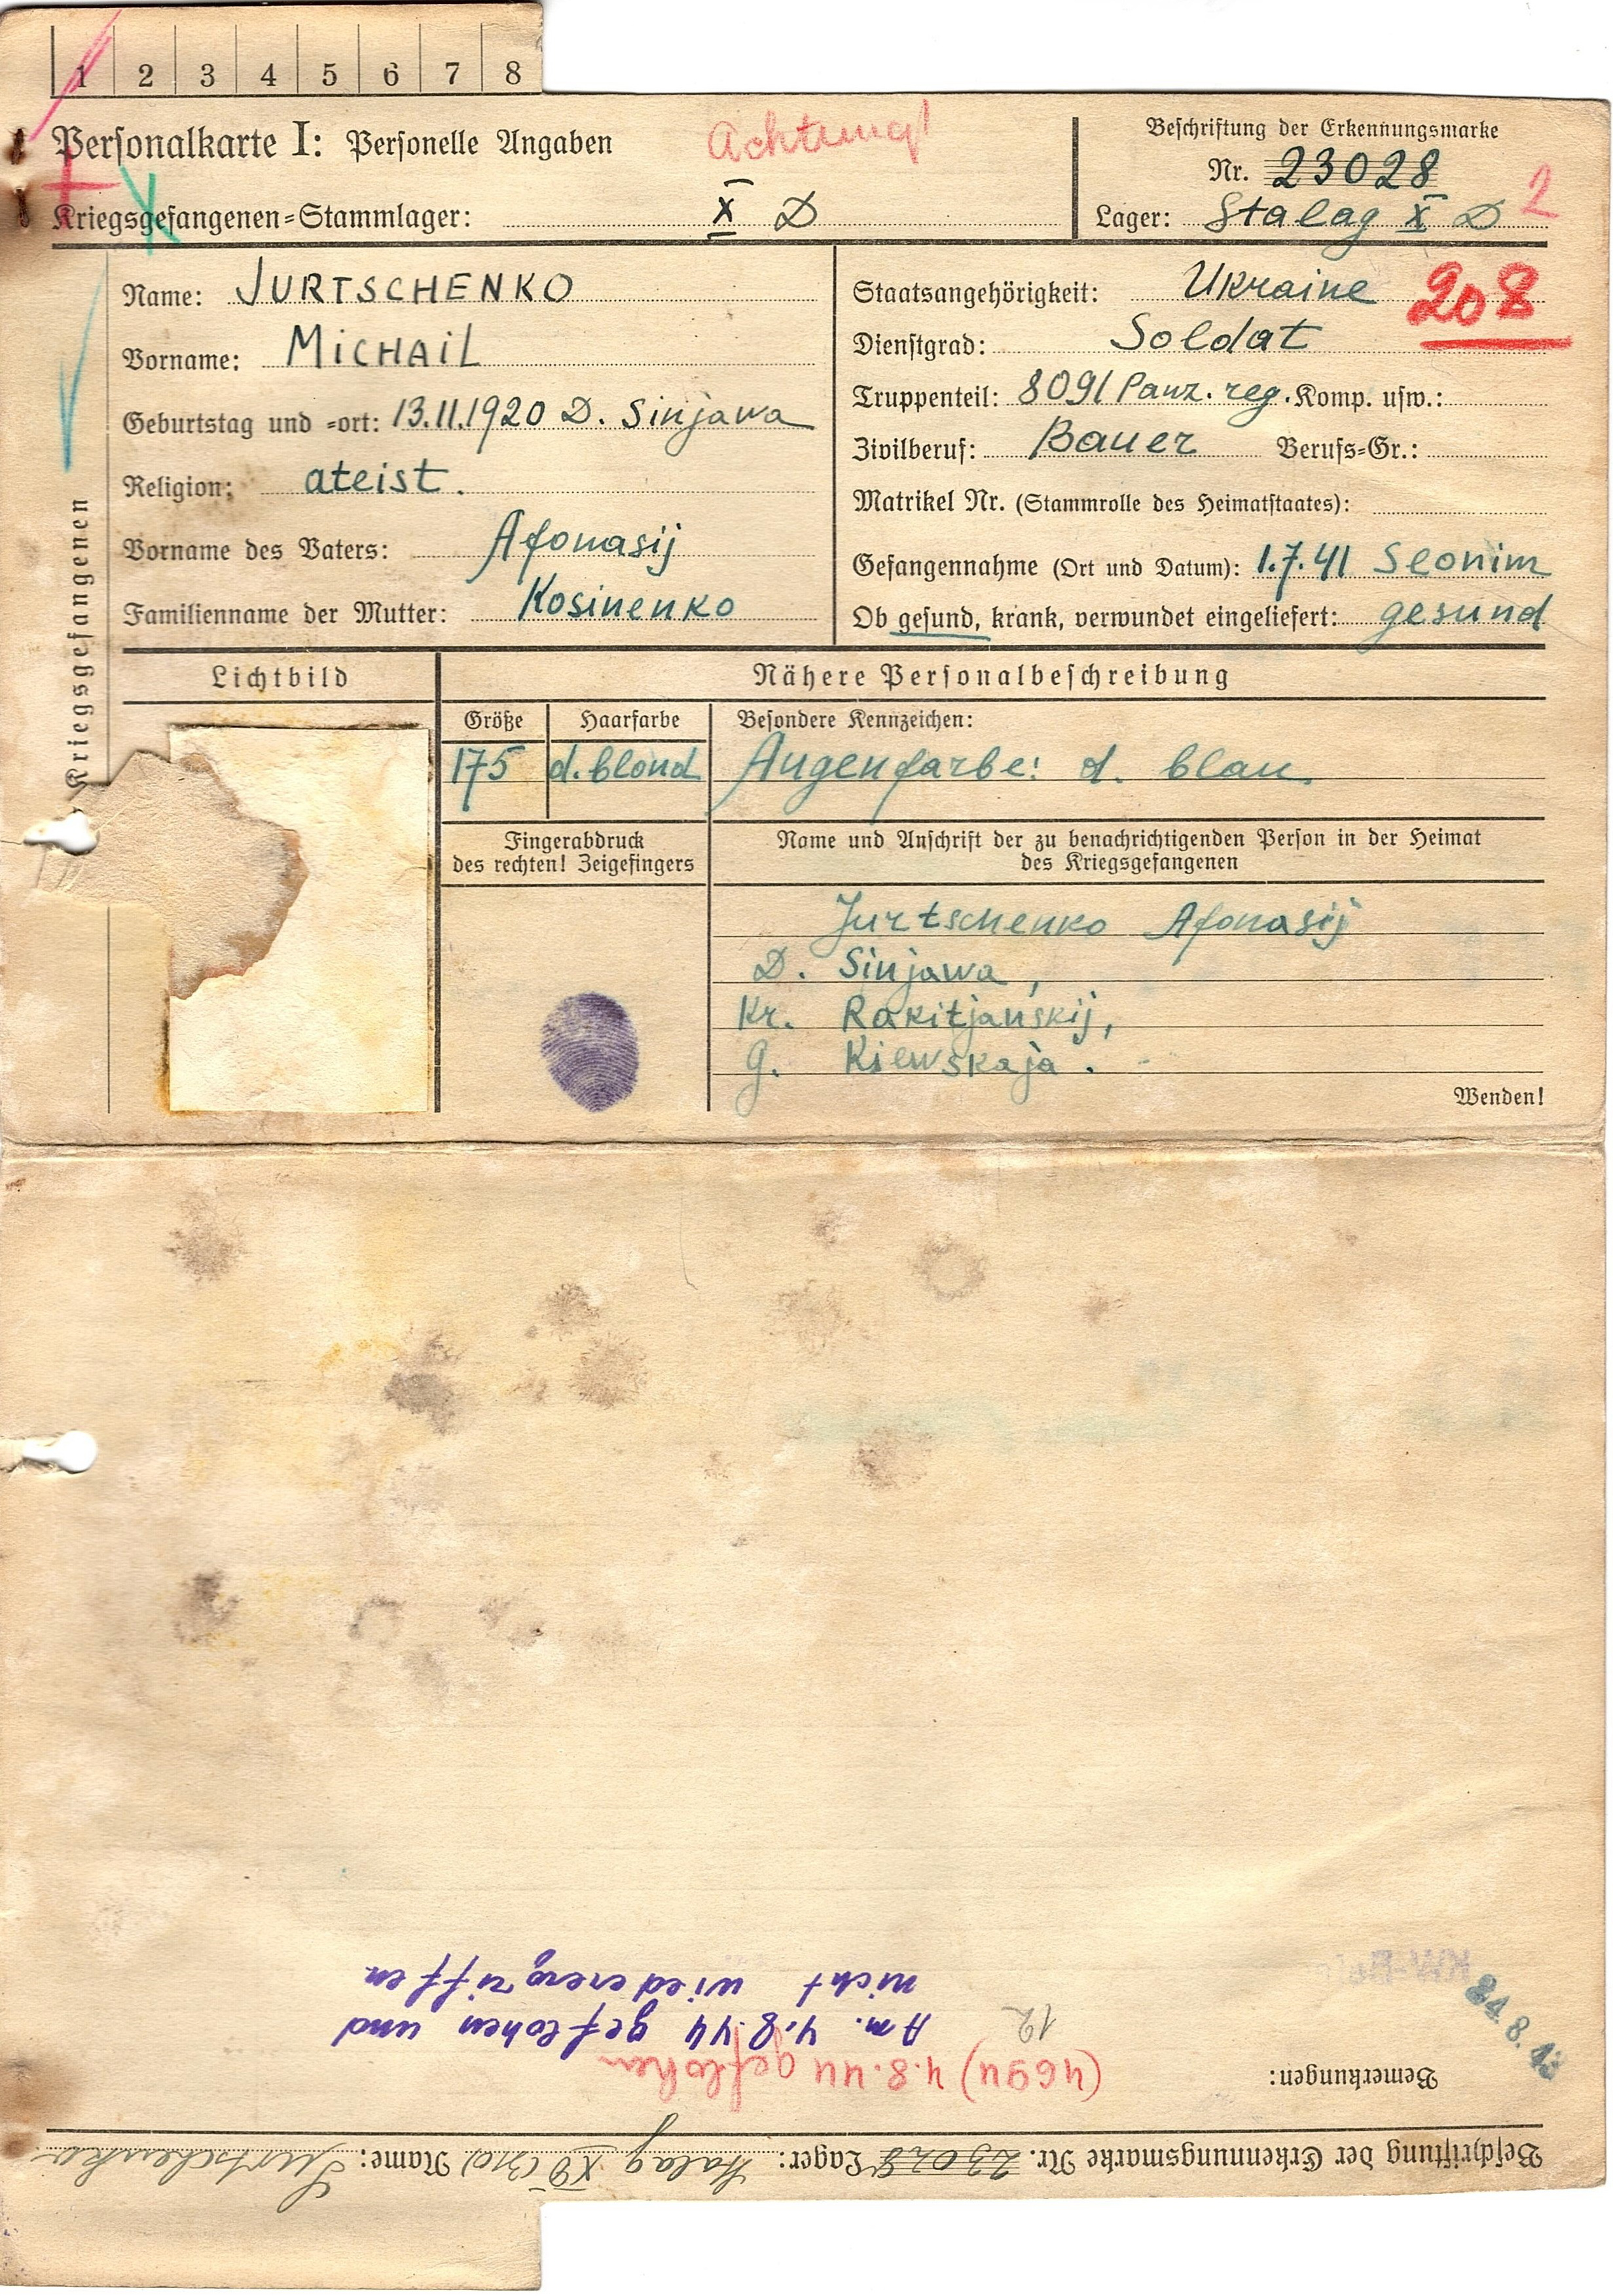 1 2 3 4 5 6 7 8
Personalkarte I: Personelle Angaben
Achtung!
Kriegsgefangenen=Stammlager: X D
Beschriftung der Erkennungsmarke
Nr. 23028
Lager: Stalag X D
2
Name: JURTSCHENKO
Vorname: MICHAIL
Geburtstag und =ort: 13.11.1920 D. Sinjawa
Religion: ateist.
Vorname des Vaters: Afonasij
Familienname der Mutter: Kosinenko
Staatsangehörigkeit: Ukraine
208
Dienstgrad: Soldat
Truppenteil: 8091 Panz. reg. Komp. usw.:
Zivilberuf: Bauer Berufs=Gr.:
Matrikel Nr. (Stammrolle des Heimatstaates):
Gefangennahme (Ort und Datum): 1.7.41 Slonim
Ob gesund, krank, verwundet eingeliefert: gesund
Kriegsgefangenen
Lichtbild
Nähere Personalbeschreibung
Größe Haarfarbe Besondere Kennzeichen:
175 d. blond Augenfarbe: d. blau
Fingerabdruck
des rechten! Zeigefingers
Name und Anschrift der zu benachrichtigenden Person in der Heimat
des Kriegsgefangenen
Jurtschenko Afonasij
D. Sinjawa,
Kr. Rakitjanskij,
G. Kiewskaja.
Wenden!
Beschriftung der Erkennungsmarke Nr. 23028 Lager: Stalag XD (310) Name: Jurtschenko
Bemerkungen:
(4694) 4.8.44 geflohen
24.8.43
12
Am. 4.8.44 geflohen und
nicht wiederergriffen